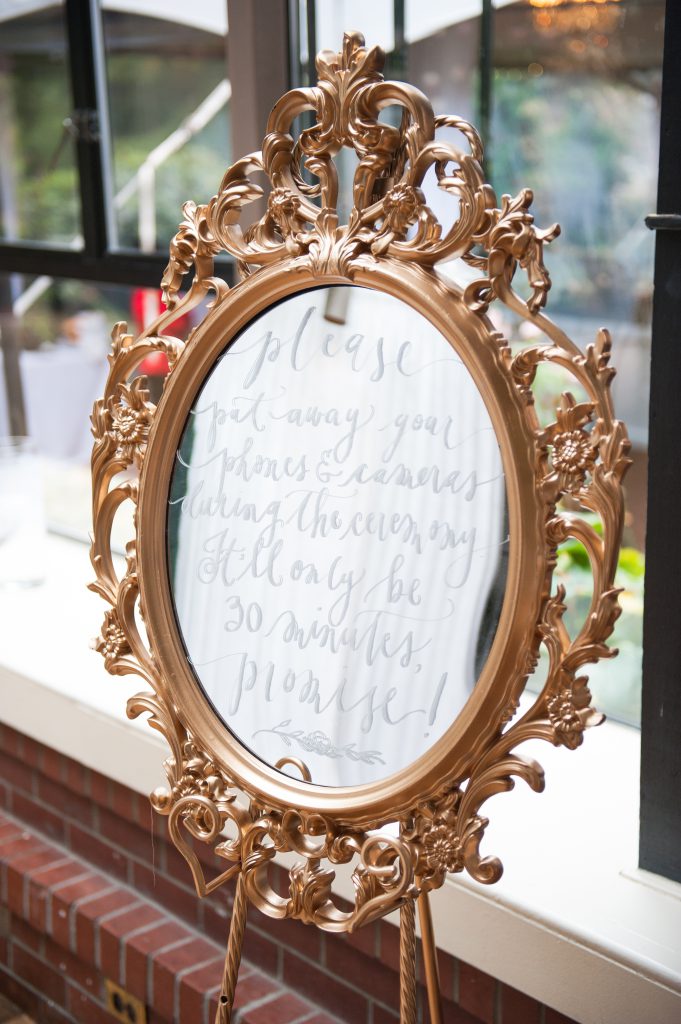 please
put away your
phones & cameras
during the ceremony
It'll only be
30 minutes,
promise!